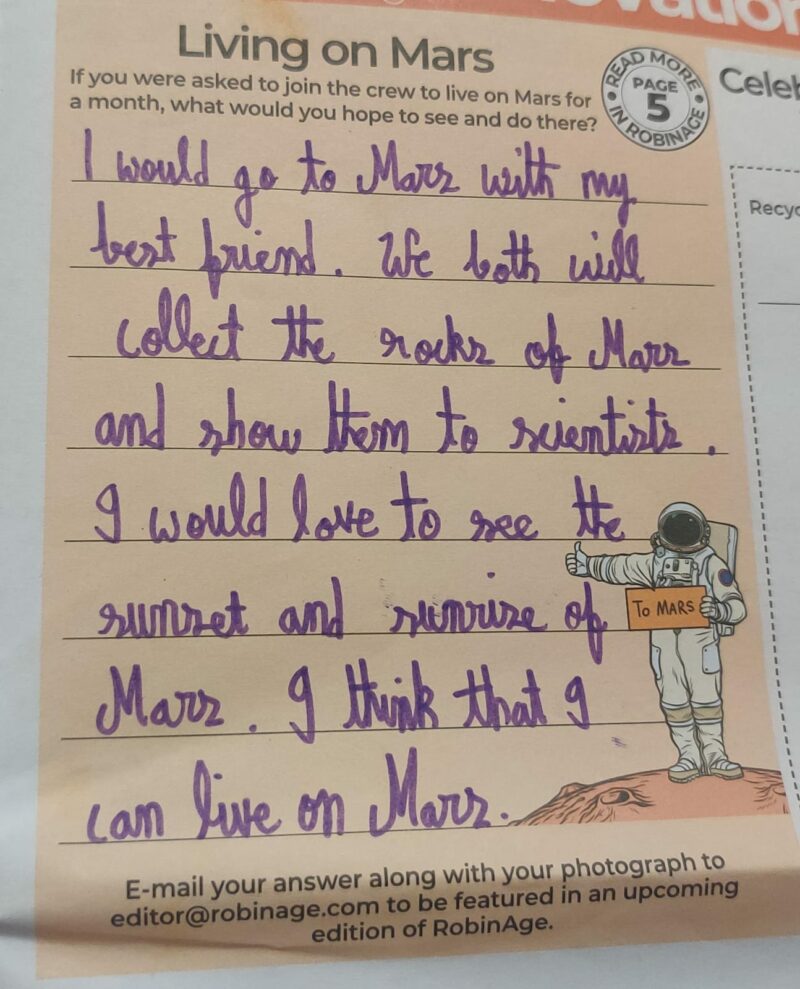 ovation
Living on Mars
If you were asked to join the crew to live on Mars for
a month, what would you hope to see and do there?
READ MORE
PAGE
5
IN ROBINAGE
Celeb
Recyc
I would go to Mars with my
best friend. We both will
collect the rocks of Mars
and show them to scientists.
I would love to see the
sunset and sunrise of
To MARS
Mars. I think that I
can live on Mars.
E-mail your answer along with your photograph to
editor@robinage.com to be featured in an upcoming
edition of RobinAge.